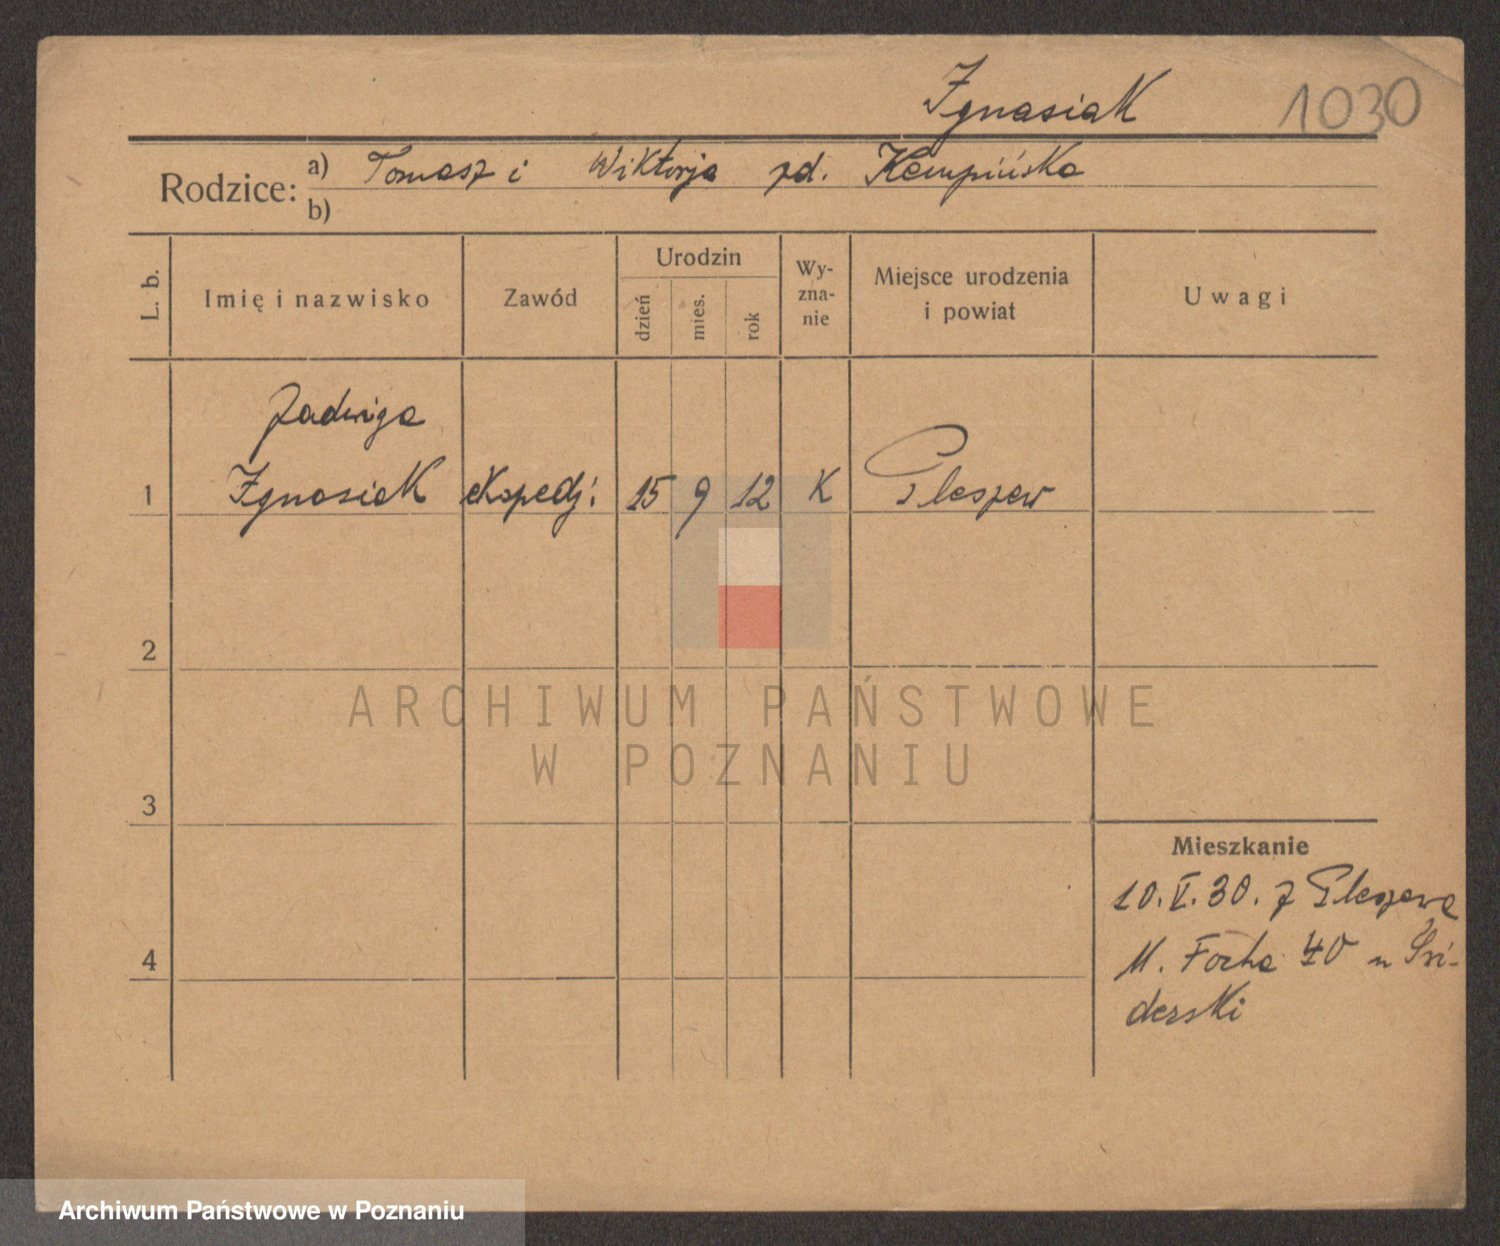 Ignasiak 1030
Rodzice: a) Tomasz i Wiktorja zd. Kempińska
b)
L. b.
Imię i nazwisko
Zawód
Urodzin
dzień
mies.
rok
Wy-
zna-
nie
Miejsce urodzenia
i powiat
Uwagi
Jadwiga
1 Ignasiak ekspedj. 15 9 12 K Pleszew
2
ARCHIWUM PAŃSTWOWE
W POZNANIU
3
Mieszkanie
10.V.30. z Pleszewa
4 M. Focha 40 u
derski
Archiwum Państwowe w Poznaniu